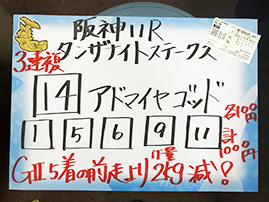 阪神11R
タンザナイトステークス
3連複
14 アドマイヤゴッド
各100円
1 5 6 9 11
計1000円
GⅢ5着の前走より斤量2kg減!